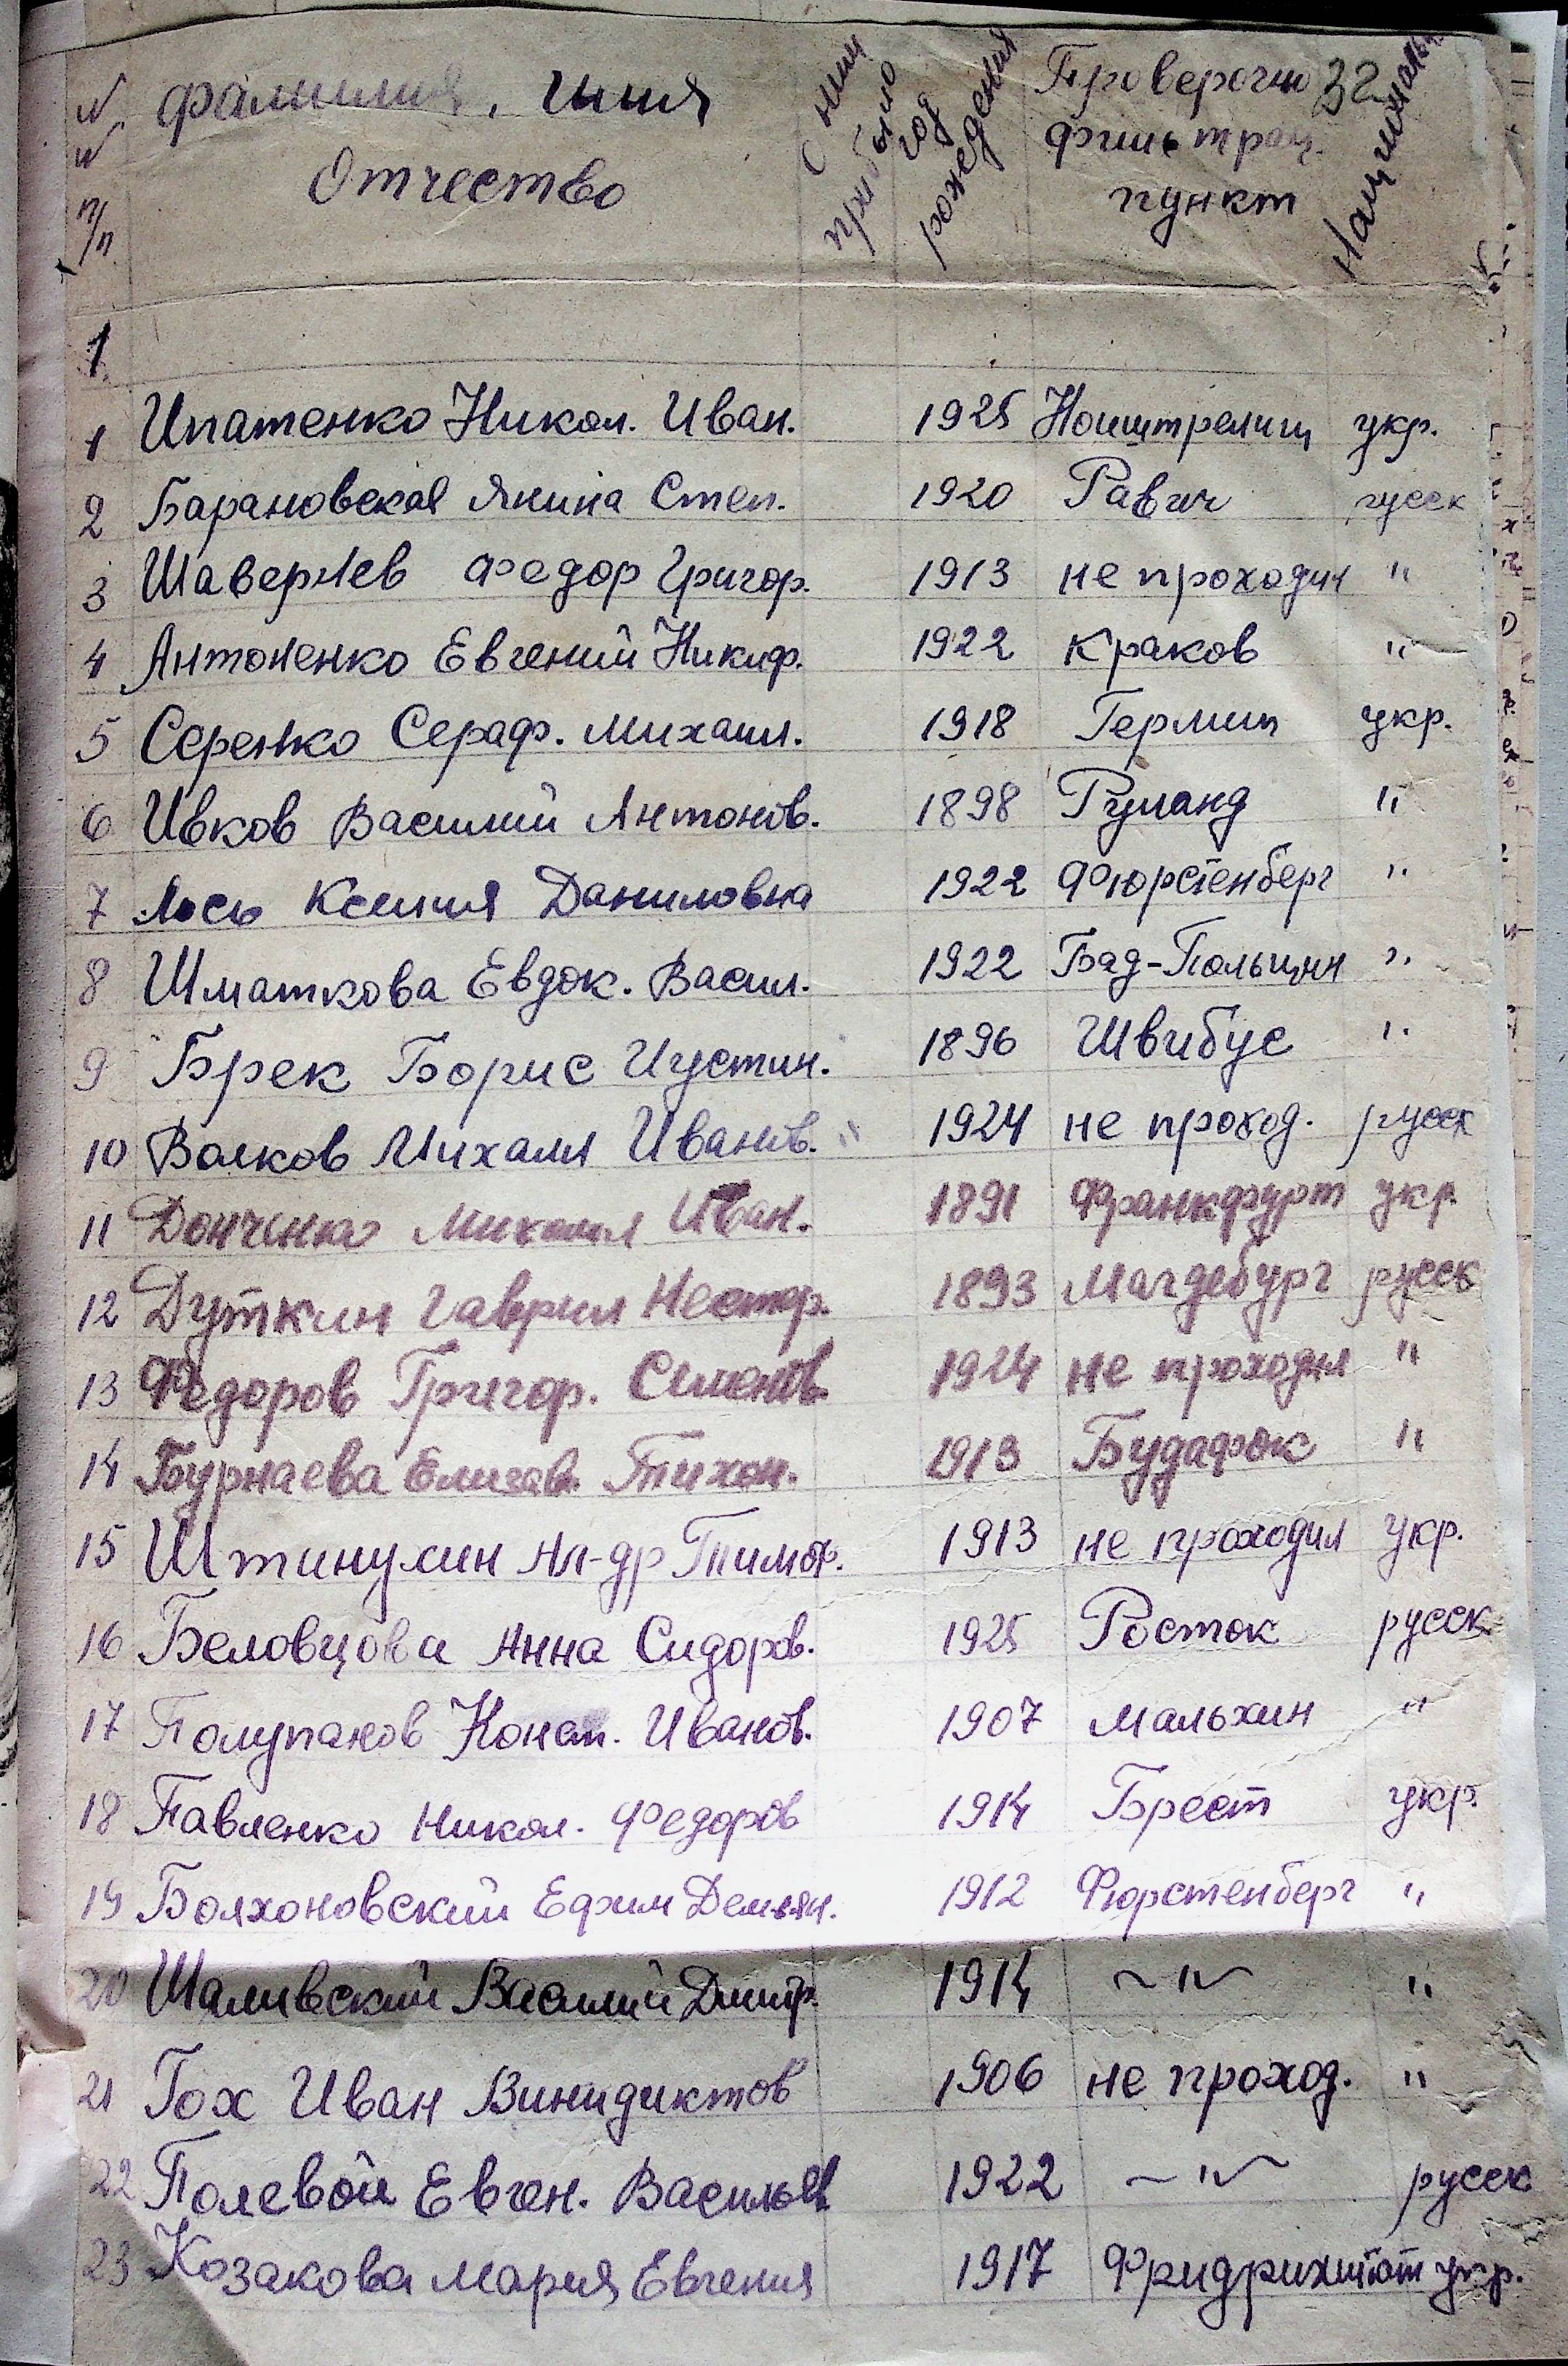 N фамилия, имя С ним прибыло год рождения Проверочно 32 Национальн.
N Отчество фильтрац.
п/п пункт
1
1 Ипатенко Никол. Иван. 1925 Ноиштрелиц укр.
2 Барановская Янина Степ. 1920 Равич русск
3 Шавернев Федор Григор. 1913 не проходил "
4 Антоненко Евгений Никиф. 1922 Краков "
5 Серенко Сераф. Михаил. 1918 Гермин укр.
6 Ивков Василий Антонов. 1898 Руланд "
7 Лось Ксения Даниловна 1922 Фюрстенберг "
8 Шматкова Евдок. Васил. 1922 Бад-Польцин "
9 Брек Борис Иустин. 1896 Швибус "
10 Волков Михаил Иванов. " 1924 не проход. русск
11 Донченко Михаил Иван. 1891 Франкфурт укр
12 Дуткин Гаврил Нестер. 1893 Магдебург русск
13 Федоров Григор. Семенов. 1924 не проходил "
14 Бурнаева Елизав. Тихон. 1913 Будафок "
15 Штинулин Ал-др Тимоф. 1913 не проходил укр.
16 Беловцова Анна Сидоров. 1925 Росток русск
17 Полупанов Конст. Иванов. 1907 Мальхин "
18 Павленко Никол. Федоров 1914 Брест укр.
19 Болхоновский Ефим Демьян. 1912 Фюрстенберг "
20 Шаливский Василий Дмитр. 1914 ~"~ "
21 Гох Иван Винидиктов 1906 не проход. "
22 Полевой Евген. Васильев 1922 ~"~ русск
23 Козакова Мария Евгения 1917 Фридрихштат укр.